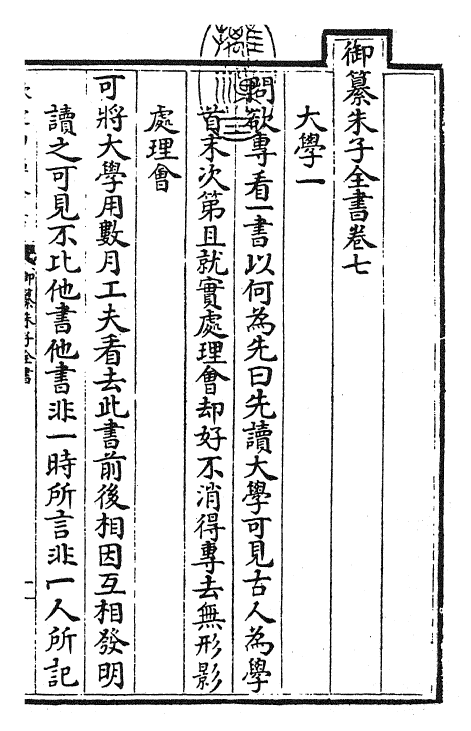 御纂朱子全書卷七
大學一
問欲專看一書以何為先曰先讀大學可見古人為學
首末次第且就實處理會却好不消得專去無形影
處理會
可將大學用數月工夫看去此書前後相因互相發明
讀之可見不比他書他書非一時所言非一人所記
御纂朱子全書